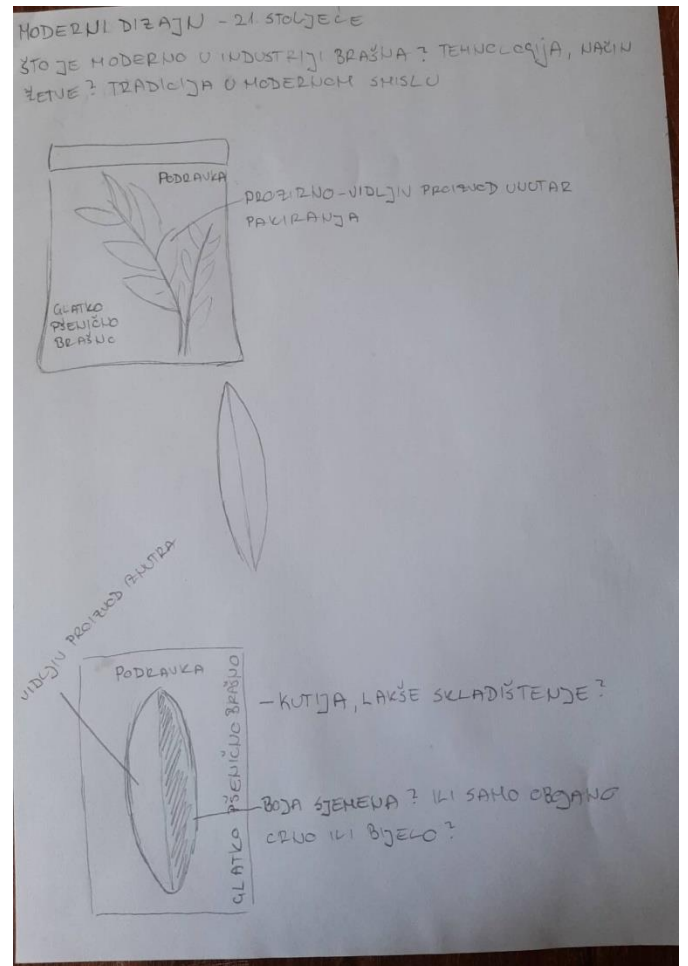 MODERNI DIZAJN - 21. STOLJEĆE
ŠTO JE MODERNO U INDUSTRIJI BRAŠNA? TEHNOLOGIJA, NAČIN
ŽETVE? TRADICIJA U MODERNOM SMISLU
PODRAVKA
PROZIRNO-VIDLJIV PROIZVOD UNUTAR
PAKIRANJA
GLATKO
PŠENIČNO
BRAŠNO
VIDLJIV PROIZVOD IZNUTRA
PODRAVKA
GLATKO PŠENIČNO BRAŠNO
- KUTIJA, LAKŠE SKLADIŠTENJE?
BOJA SJEMENA? ILI SAMO OBOJANO
CRNO ILI BIJELO?